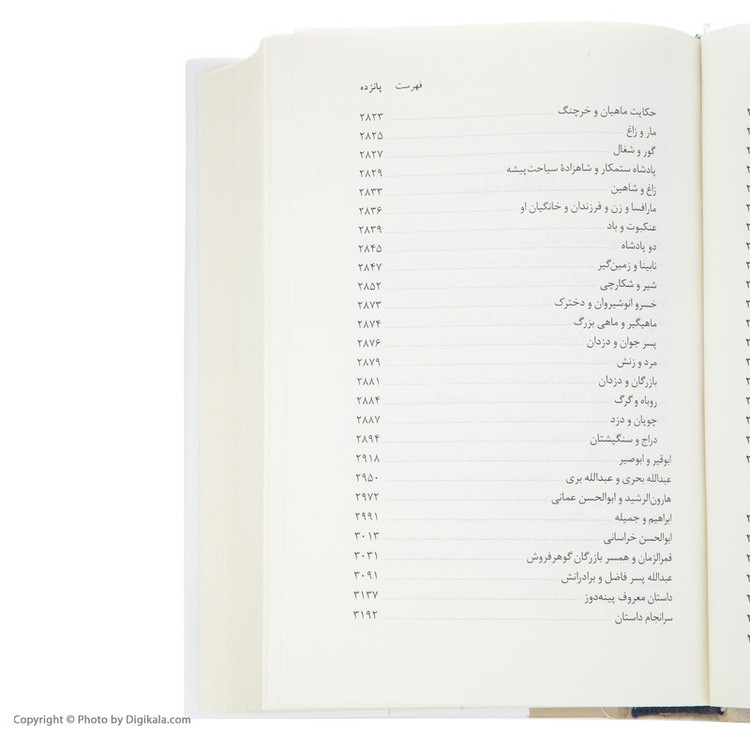 فهرست پانزده
حکایت ماهیان و خرچنگ ۲۸۲۳
مار و زاغ ۲۸۲۵
گور و شغال ۲۸۲۷
پادشاه ستمکار و شاهزادهٔ سیاحت‌پیشه ۲۸۲۹
زاغ و شاهین ۲۸۳۳
مارافسا و زن و فرزندان و خانگیان او ۲۸۳۶
عنکبوت و باد ۲۸۳۹
دو پادشاه ۲۸۴۵
نابینا و زمین‌گیر ۲۸۴۷
شیر و شکارچی ۲۸۵۲
خسرو انوشیروان و دخترک ۲۸۷۳
ماهیگیر و ماهی بزرگ ۲۸۷۴
پسر جوان و دزدان ۲۸۷۶
مرد و زنش ۲۸۷۹
بازرگان و دزدان ۲۸۸۱
روباه و گرگ ۲۸۸۴
چوپان و دزد ۲۸۸۷
دراج و سنگپشتان ۲۸۹۴
ابوقیر و ابوصیر ۲۹۱۸
عبدالله بحری و عبدالله بری ۲۹۵۰
هارون‌الرشید و ابوالحسن عمانی ۲۹۷۲
ابراهیم و جمیله ۲۹۹۱
ابوالحسن خراسانی ۳۰۱۳
قمرالزمان و همسر بازرگان گوهرفروش ۳۰۳۱
عبدالله پسر فاضل و برادرانش ۳۰۹۱
داستان معروف پینه‌دوز ۳۱۳۷
سرانجام داستان ۳۱۹۲
Copyright © Photo by Digikala.com